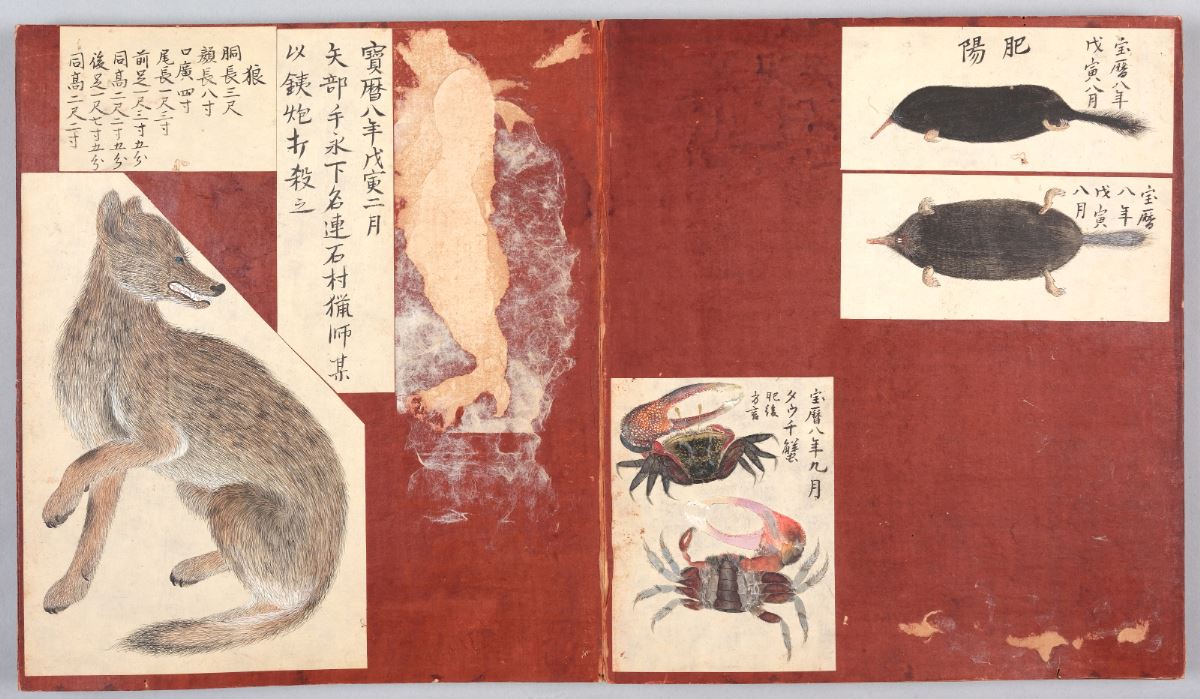 狼
胴長三尺
顔長八寸
口廣四寸
尾長一尺三寸
前足一尺三寸五分
同高二尺二寸五分
後足一尺七寸五分
同高二尺二寸
寶暦八年戊寅二月
矢部手永下名連石村猟师某
以銕炮打殺之
肥陽
宝暦八年
戊寅八月
宝暦
八年
戊寅
八月
宝暦八年九月
タウチ蟹
肥後
方言